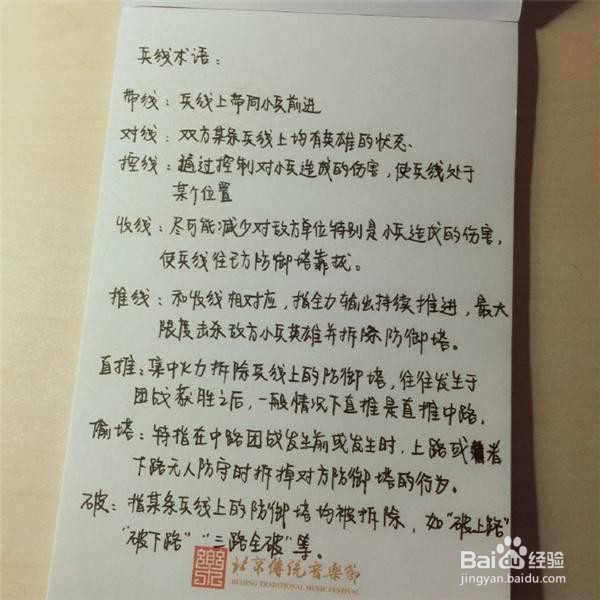 兵线术语：
带线：兵线上带同小兵前进
对线：双方某条兵线上均有英雄的状态、
控线：通过控制对小兵造成的伤害，使兵线处于
某个位置
收线：尽可能减少对敌方单位特别是小兵造成的伤害，
使兵线往己方防御塔靠拢。
推线：和收线相对应，指全力输出持续推进，最大
限度击杀敌方小兵英雄并拆除防御塔。
直推：集中火力拆除兵线上的防御塔，往往发生于
团战获胜之后，一般情况下直推是直推中路。
偷塔：特指在中路团战发生前或发生时，上路或者
下路无人防守时拆掉对方防御塔的行为。
破：指某条兵线上的防御塔均被拆除，如“破上路”
“破下路”“三路全破”等。
北京傳統音樂節
BEIJING TRADITIONAL MUSIC FESTIVAL
Baidu经验
jingyan.baidu.com